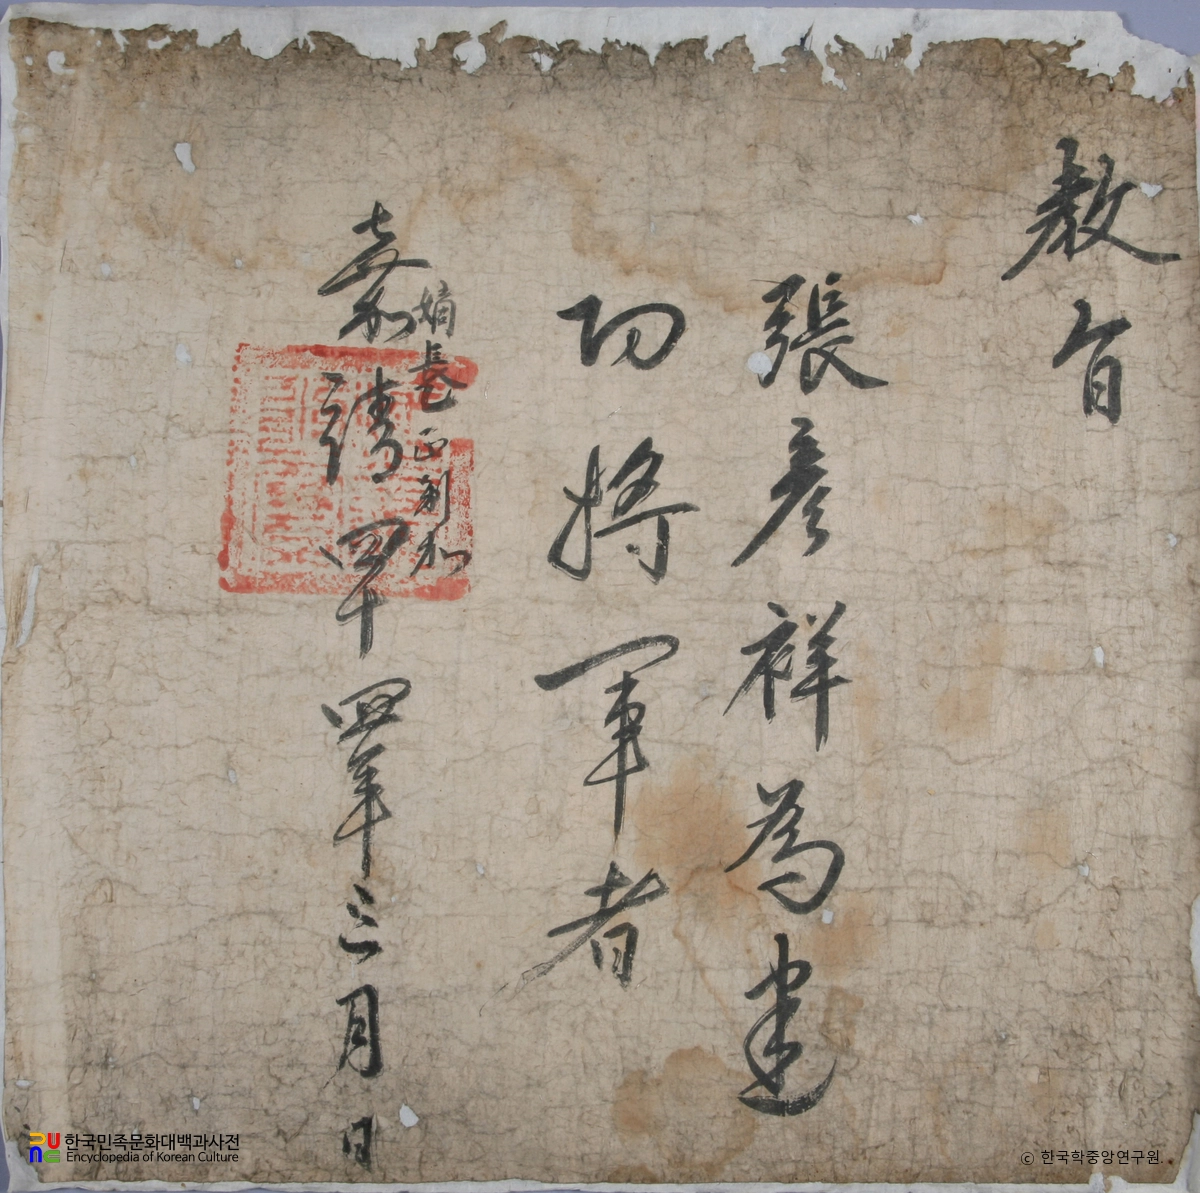 教旨
張彦祥為建
功將軍者
嘉靖四十四年三月 日
嫡長
加
한국민족문화대백과사전
Encyclopedia of Korean Culture
ⓒ 한국학중앙연구원.